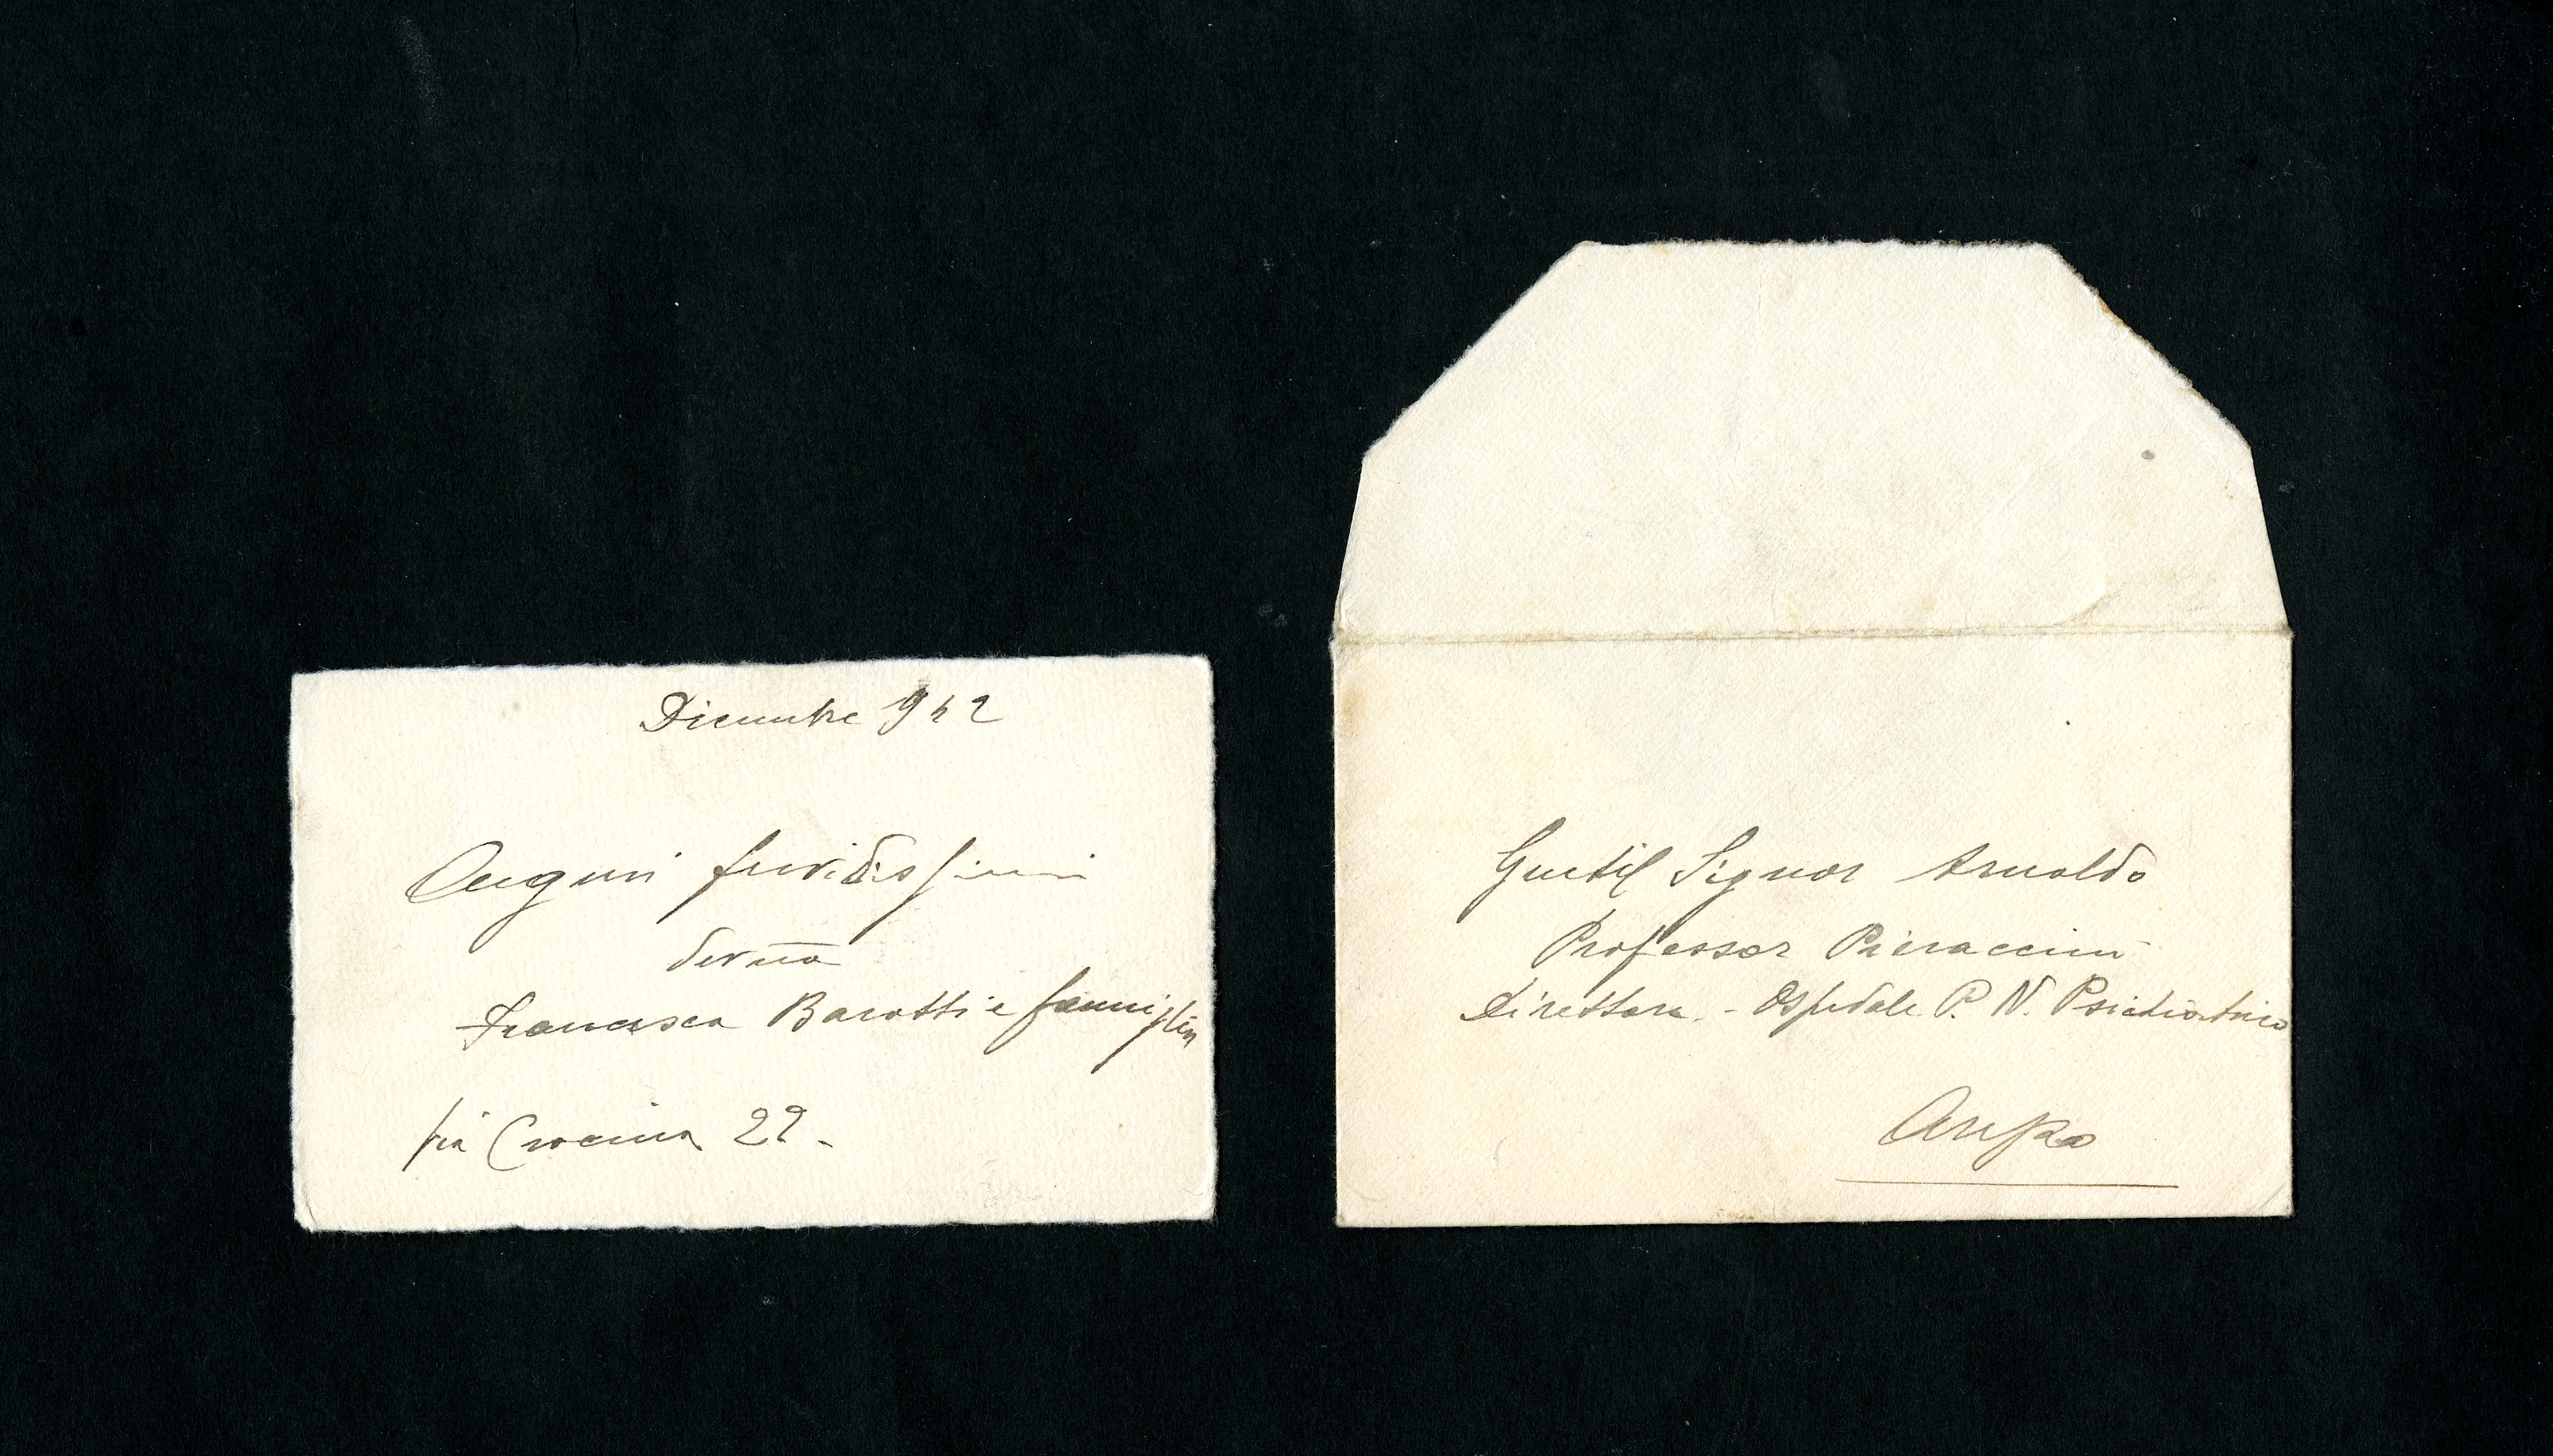 Dicembre 942
Auguri fervidissimi
Francesca Barotti e famiglia
via Crocina 22 -
Gentil Signor Arnaldo
Professor Pieraccini
Direttore - Ospedale P. N. Psichiatrico
Arezzo